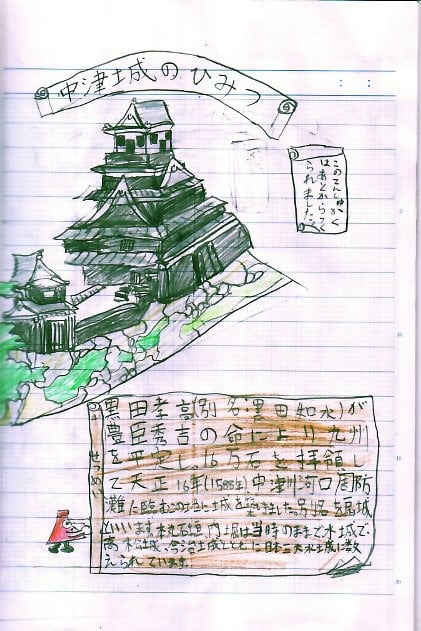 中津城のひみつ
このてんしゅかく
はあとからつく
られました。
せつめい
黒田孝高(別名:黒田如水)が
豊臣秀吉の命により九州
を平定し、16万石を拝領し
て天正16年(1588年)中津川河口周防
灘に臨むこの地に城を築きました。別名扇城
といいます。本丸石垣、内堀は当時のままで水城で
高松城、今治城とともに日本三大水城に数
えられています。